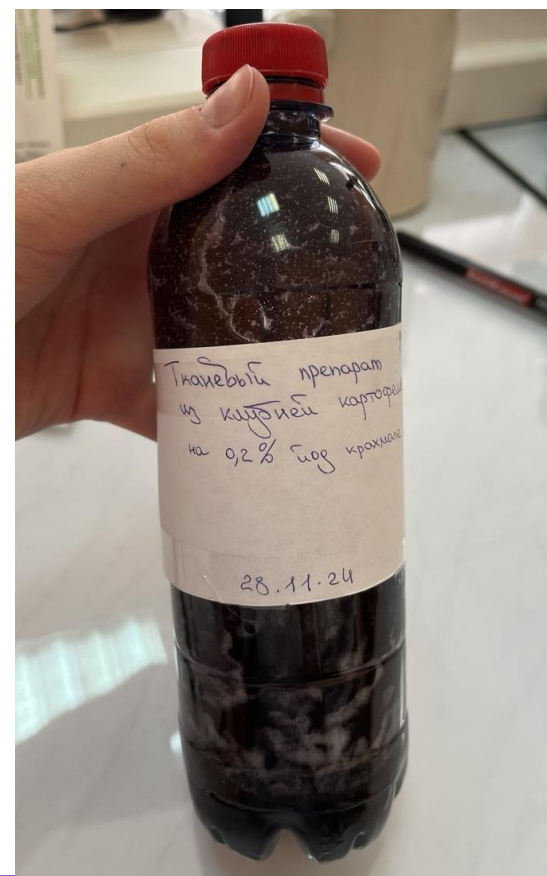 Тканевый препарат
из клубней картофеля
на 0,2% йод крахмале
28.11.24